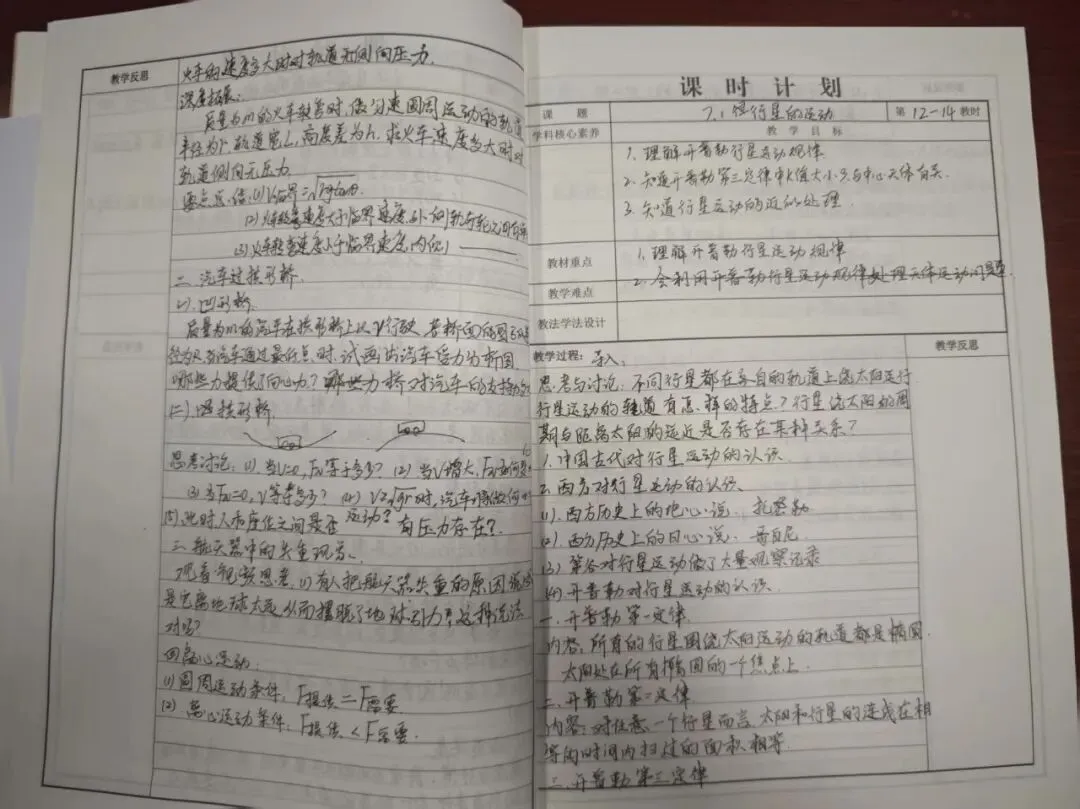 教学反思
火车的速度多大时对轨道无侧向压力.
深度拓展:
质量为m的火车转弯时,做匀速圆周运动的轨道
半径为r.轨道宽L,高度差为h.求火车速度多大时对
轨道侧向无压力.
要点总结:(1)V临界=√rgtanθ.
(2)火车转弯速度大于临界速度,外侧轨与轮之间有
(3)火车转弯速度小于临界速度,内侧
二.汽车过拱形桥.
(一).凹形桥.
质量为m的汽车在拱形桥上以V行驶 若桥面的圆弧
径为R.当汽车通过最低点时,试画出汽车受力分析图.
哪些力提供了向心力?哪些力 桥对汽车的支持
(二)拱形桥.
思考讨论:(1).当V=0,FN等于多少? (2) 当V增大,FN如何
(3)当FN=0,V等于多少? (4) V≥√gr时,汽车将做何
运动?
(5).此时人和座位之间是否有压力存在?
三.航天器中的失重现象.
观看视频思考.(1)有人把航天器失重的原因说成
是它离地球太远 从而摆脱了地球引力,这种说法
对吗?
四离心运动.
(1)圆周运动条件,F提供=F需要
(2) 离心运动条件,F提供<F需要.
课时计划
课题
7.1 行星的运动
第12-14教时
学科核心素养
教学目标
1.理解开普勒行星运动规律
2.知道开普勒第三定律中k值大小只与中心天体有关.
3.知道行星运动的近似处理.
教材重点
1.理解开普勒行星运动规律
教学难点
2.会利用开普勒行星运动规律处理天体运动问题.
教法学法设计
教学过程: 导入:
教学反思
思考与讨论:不同行星都在各自的轨道上绕太阳运行
行星运动的轨道有怎样的特点?行星绕太阳的周
期与距离太阳的远近是否存在某种关系?
1.中国古代对行星运动的认识
2.西方对行星运动的认识
(1).西方历史上的地心说. 托密勒
(2).西方历史上的日心说. 哥白尼
(3)第谷对行星运动做了大量观察记录
(4)开普勒对行星运动的认识.
一.开普勒第一定律.
内容:所有的行星围绕太阳运动的轨道都是椭圆.
太阳处在所有椭圆的一个焦点上.
二.开普勒第二定律
内容:对任意一个行星而言,太阳和行星的连线在相
等的时间内扫过的面积相等.
三.开普勒第三定律